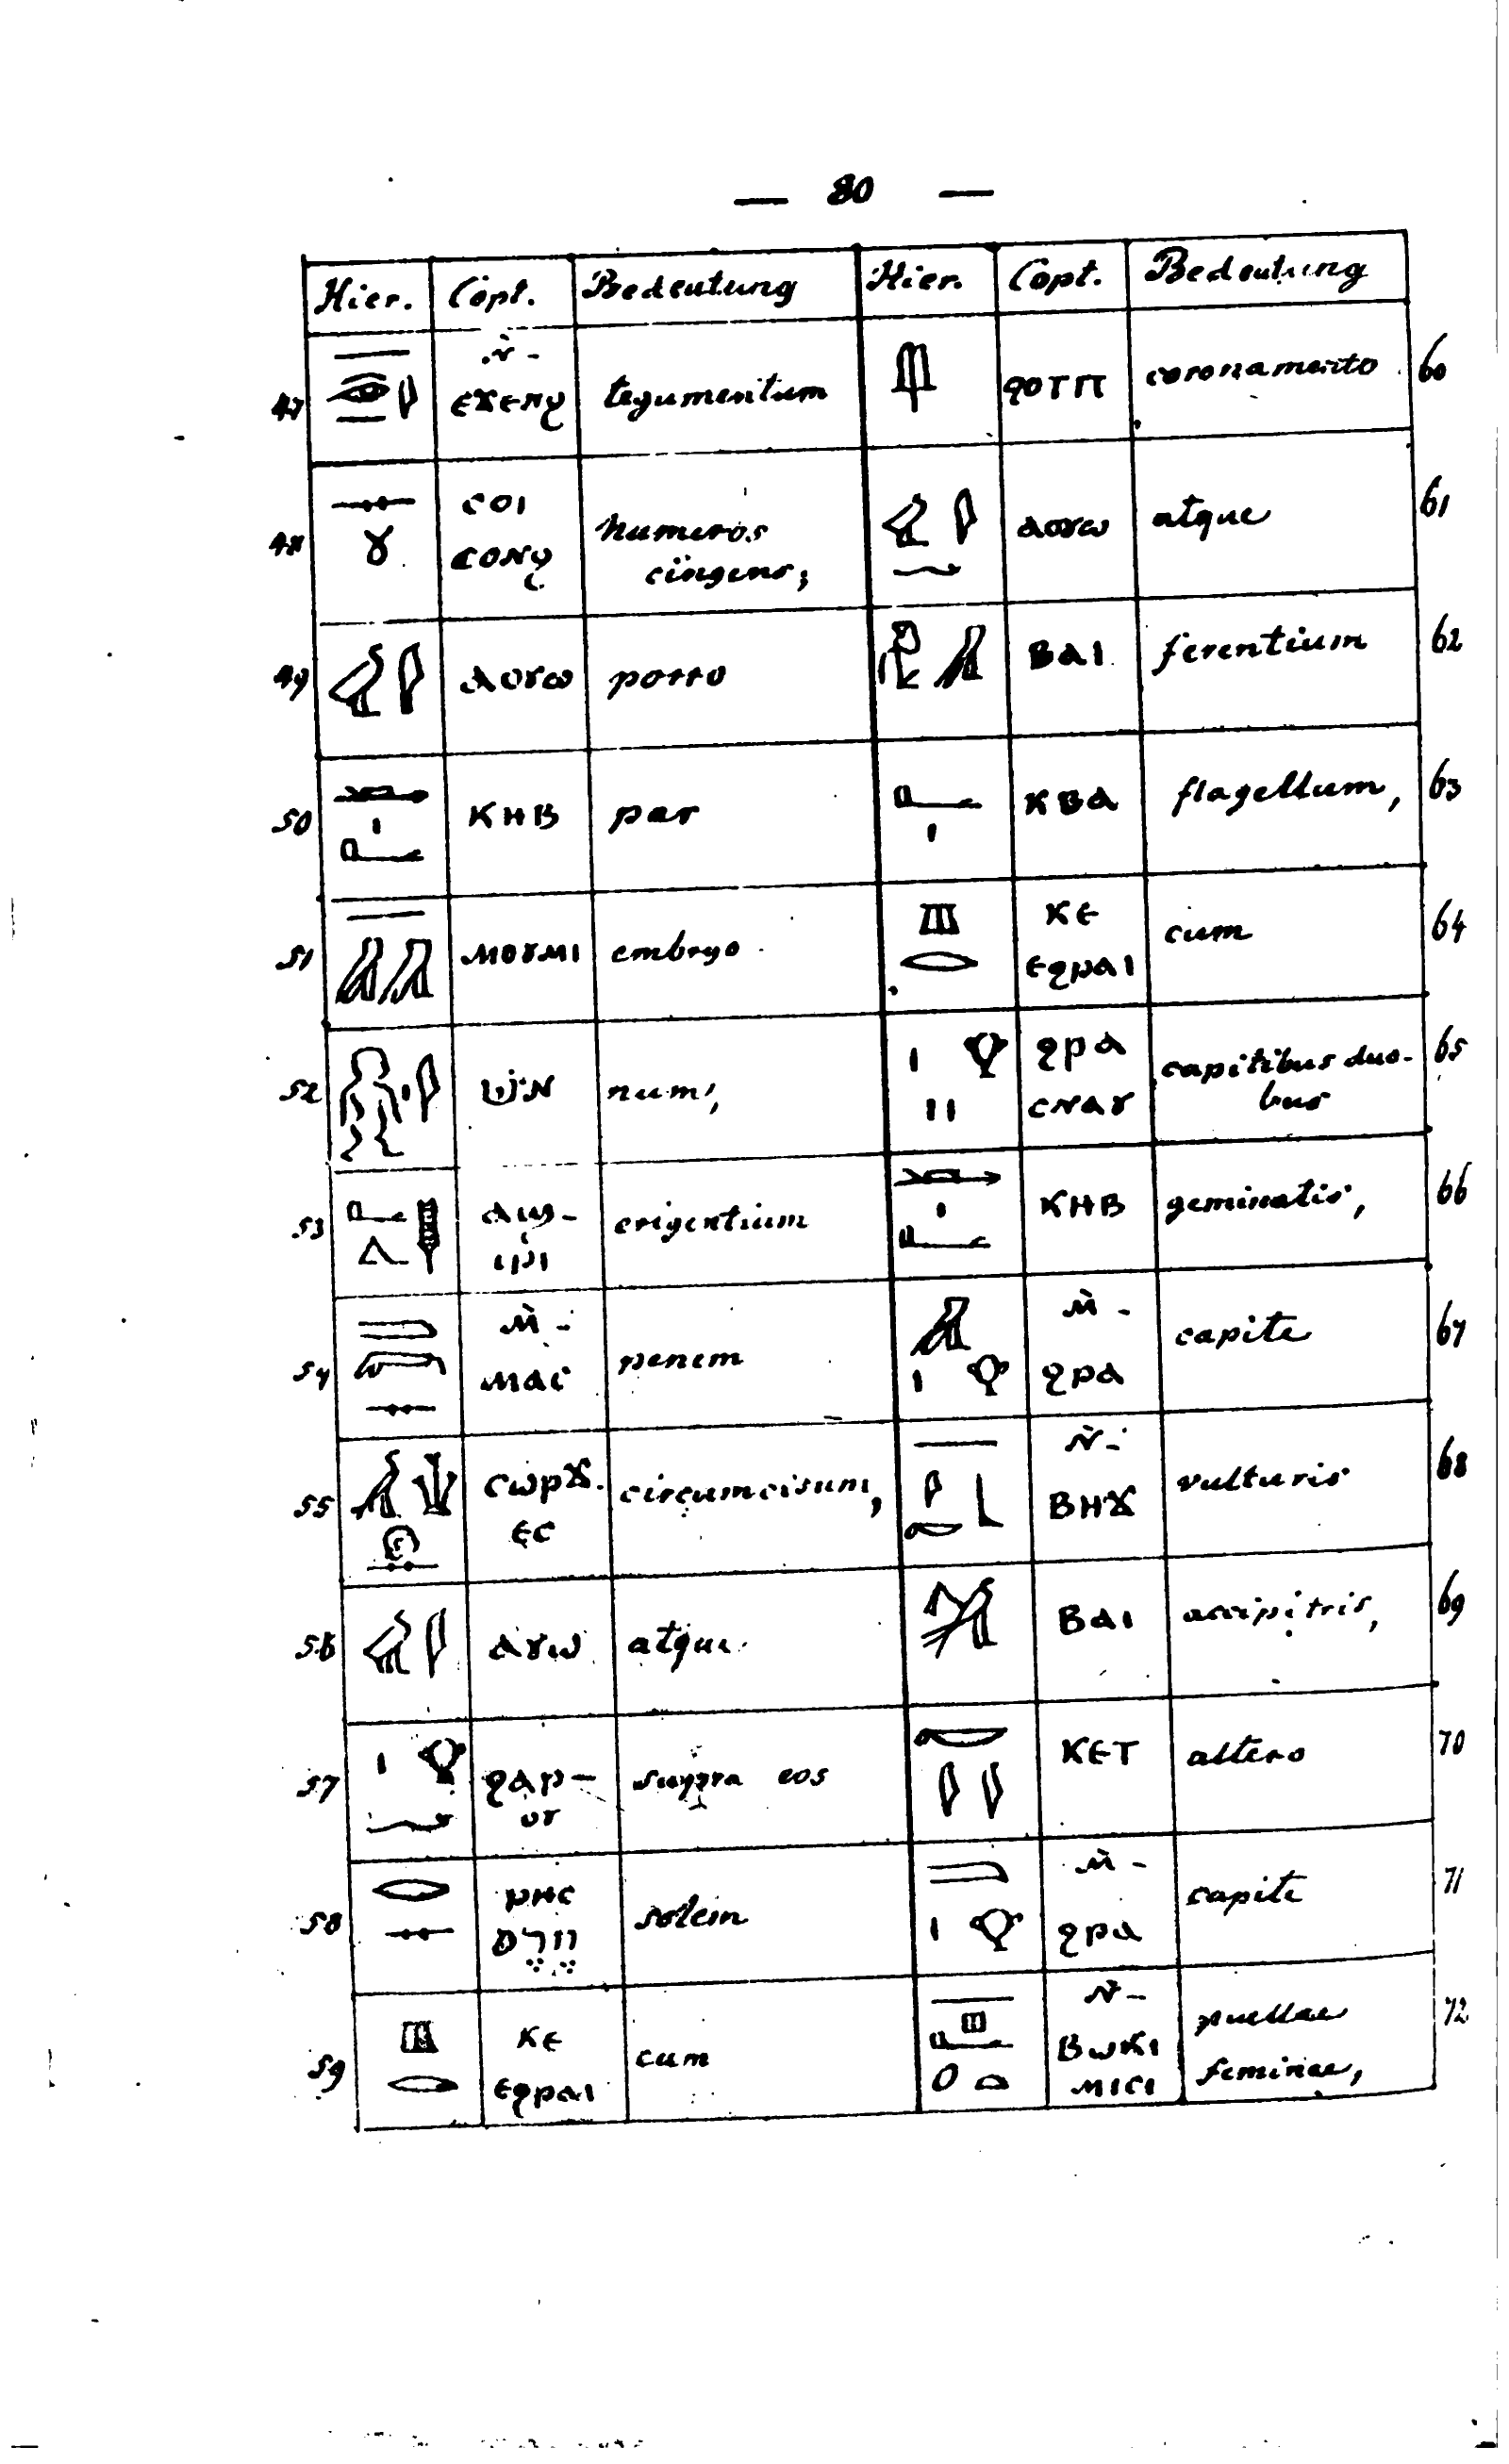 — 80 —
Hier. Copt. Bedeutung Hier. Copt. Bedeutung
47 tegumentum
ϩⲟⲧⲡ coronamento 60
48 ⲥⲟⲓ humeros
cingens;
ⲁⲟⲩⲱ atque 61
49 ⲁⲟⲩⲱ porro
ⲃⲁⲓ ferentium 62
50 ⲕⲏⲃ par
ⲕⲃⲁ flagellum, 63
51 ⲙⲟⲩⲙⲓ embryo
ⲕⲉ
ⲉϩⲣⲁⲓ cum 64
52 num,
ϩⲣⲁ
ⲥⲛⲁⲩ capitibus duo-
bus 65
53 erigentium
ⲕⲏⲃ geminatis, 66
54 ⲙ̀-
ⲙⲁⲥ penem
ⲙ̀-
ϩⲣⲁ capite 67
55 ⲥⲱⲣϫ.
ⲉⲥ circumcisum,
ⲛ̀-
ⲃⲏϫ vulturis 68
56 ⲁⲩⲱ atque
ⲃⲁⲓ accipitris, 69
57 ϩⲁⲣ-
ⲟⲩ supra eos
ⲕⲉⲧ altero 70
58 ⲣⲏⲥ
חרס solem
ⲙ̀-
ϩⲣⲁ capite 71
59 ⲕⲉ
ⲉϩⲣⲁⲓ cum
ⲛ̀-
ⲃⲱⲕⲓ
ⲙⲓⲥⲓ puellae
feminae, 72